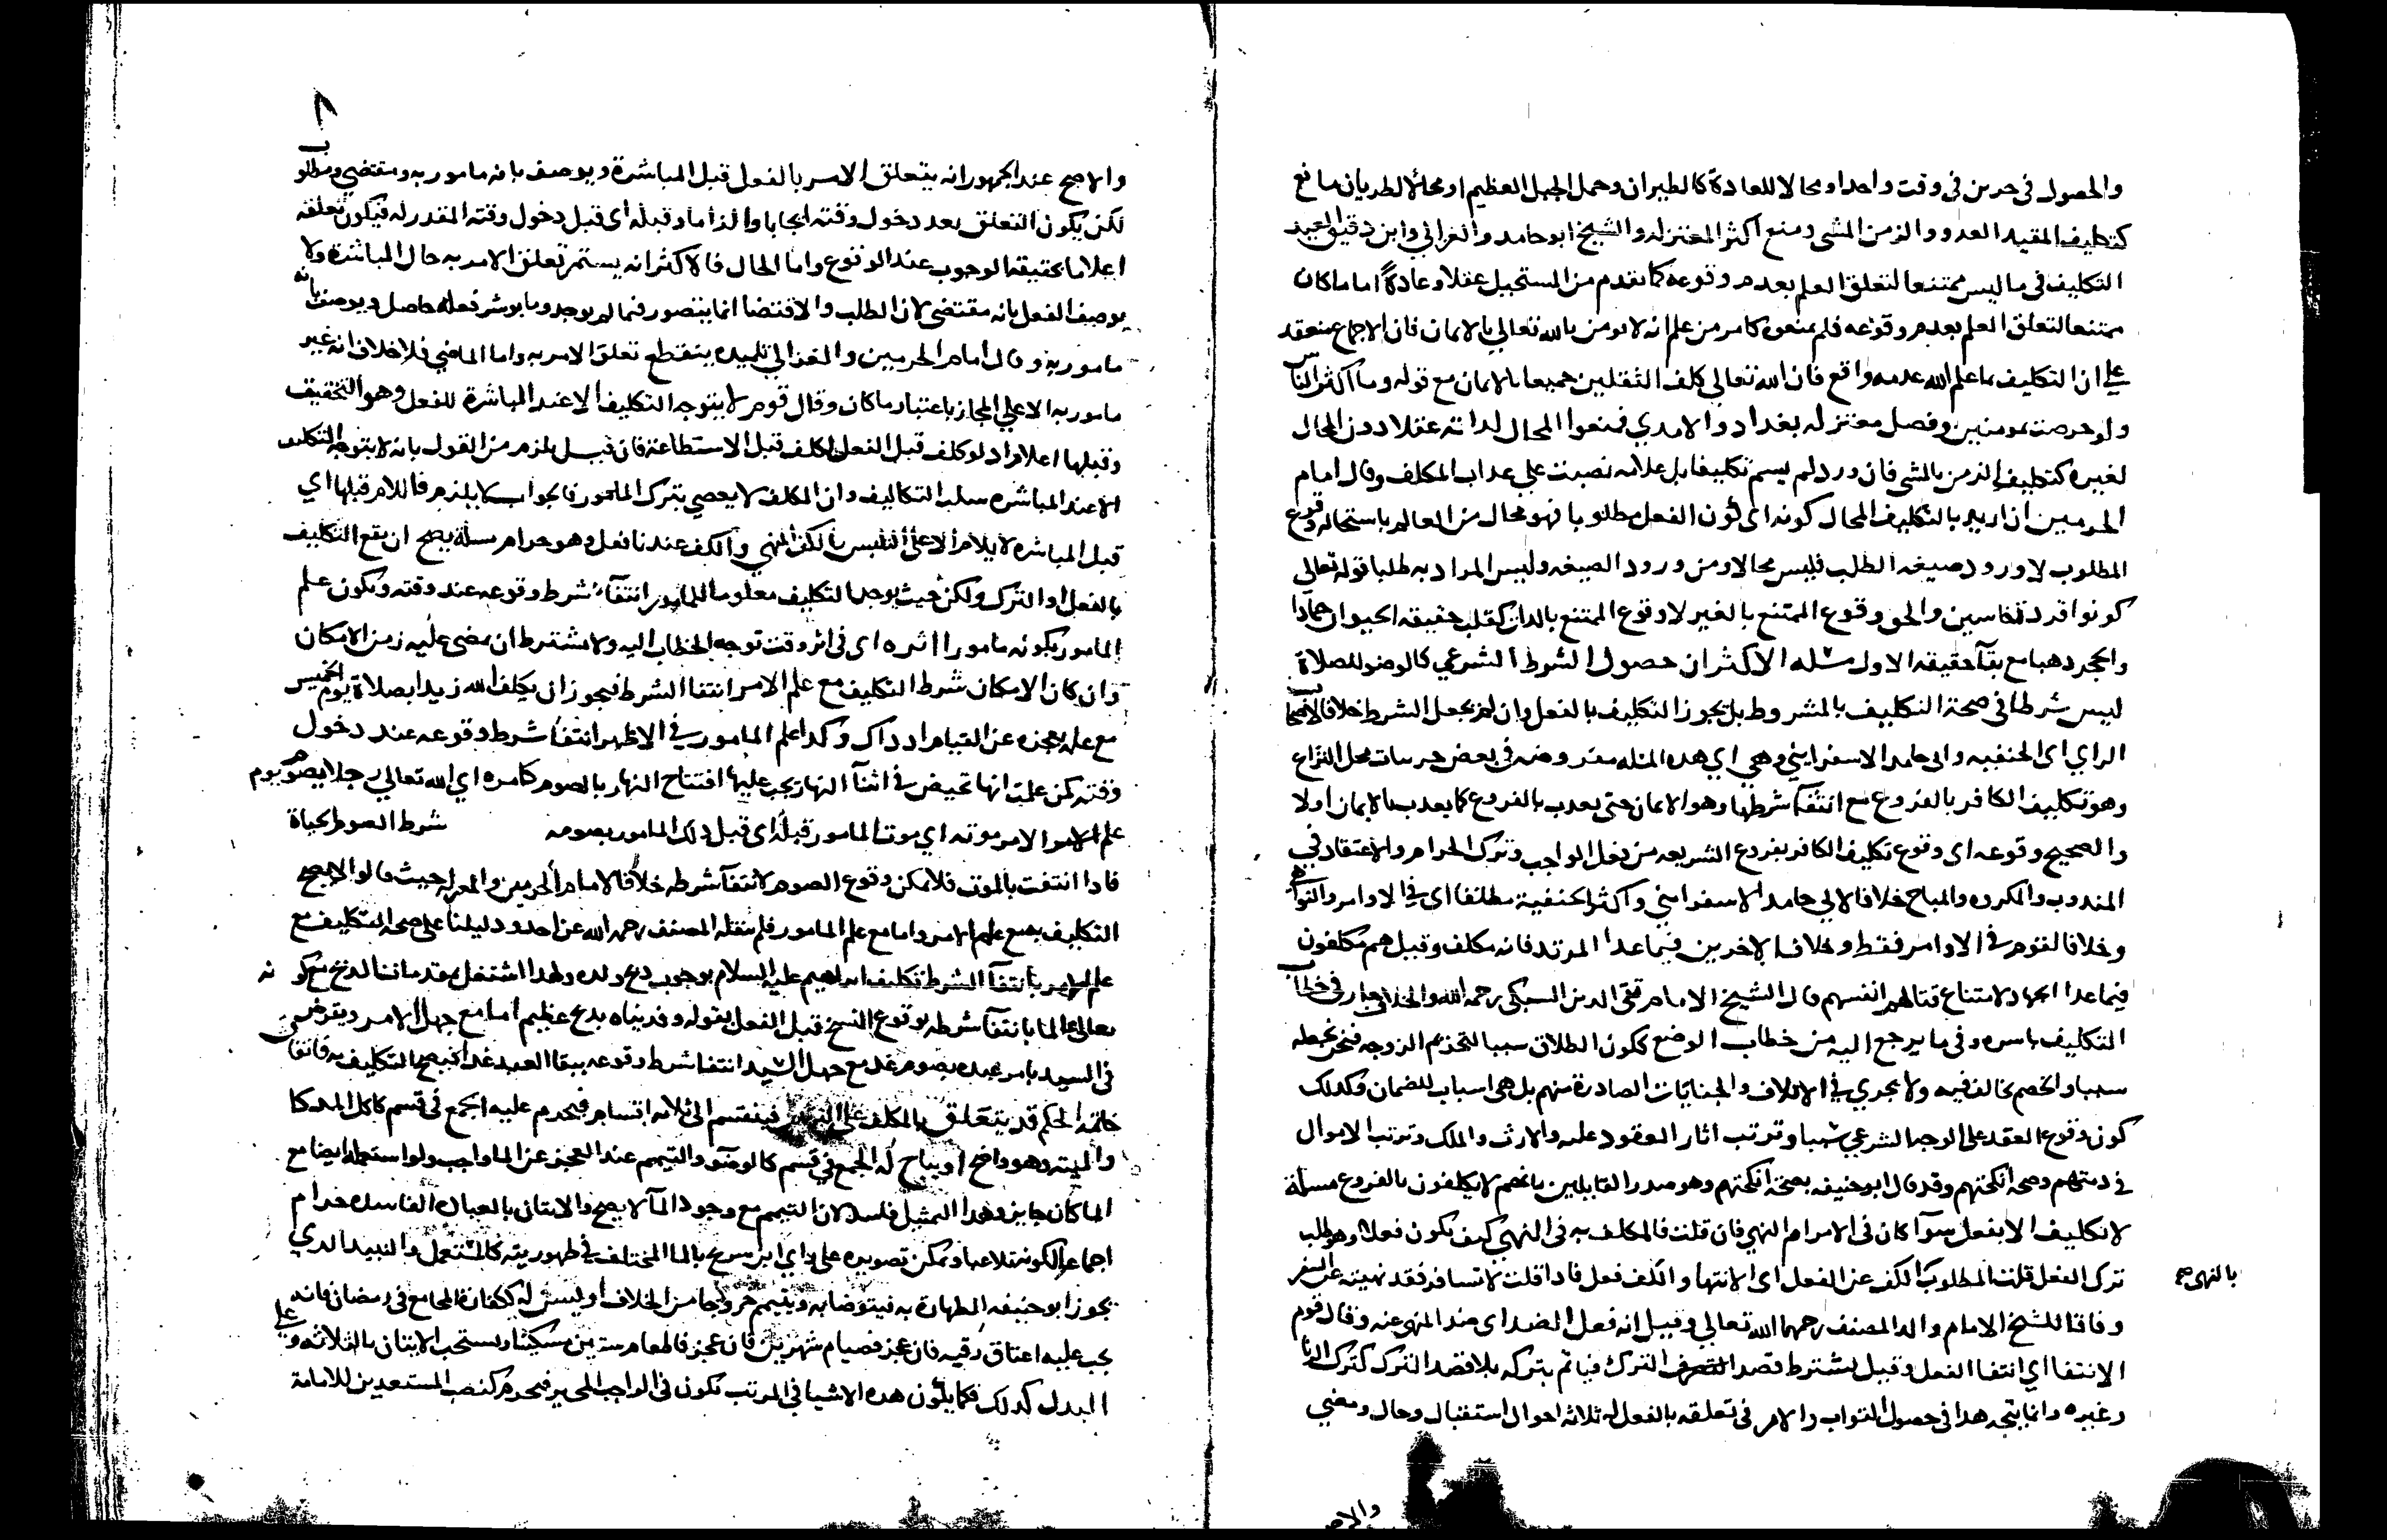 والحصول في حرين في وقت واحد او محالا للعادة كالطيران وحمل الجبل العظيم او محالا لطريان مانع
كتكليف المقيد العدو والزمن المشي ومنع اكثر المعتزله والشيخ ابو حامد والغزالي وابن دقيق العيد
التكليف في ما ليس ممتنعا لتعلق العلم بعدم وقوعه كما تقدم من المستحيل عقلا وعادة اما ما كان
ممتنعا لتعلق العلم بعدم وقوعه فلم يمنعوه كامر من علم انه لا يومن بالله تعالي بالايمان فان الاجماع منعقد
علي ان التكليف بما علم الله عدمه واقع فان الله تعالي كلف الثقلين جميعا بالايمان مع قوله وما اكثر الناس
ولو حرصت بمومنين وفصل معتزله بغداد والامدي فمنعوا المحال لداته عقلا دون المحال
لغيره كتكليف الزمن بالمشي فان ورد لم يسم تكليفا بل علامه نصبت علي عداب المكلف وقال امام
الحرمين ان اريد بالتكليف المحال كونه اي كون الفعل مطلوبا فهو محال من العالم باستحاله وقوع
المطلوب لا ورود صيغه الطلب فليس محالا ومن ورود الصيغه وليس المراد به طلبا قوله تعالي
كونوا قردة خاسين والحق وقوع الممتنع بالغير لا وقوع الممتنع بالدات كقلب حقيقه الحيوان جمادا
والحجر دهبا مع بقآ حقيقه الاول مسله الاكثر ان حصول الشرط الشرعي كالوضو للصلاة
ليس شرطا في صحة التكليف بالمشروط بل يجوز التكليف بالفعل وان لم يحصل الشرط خلافا لاصحاب
الراي اي الحنفيه وابي حامد الاسفرايني وهي اي هده المسله مفروضه في بعض جرييات محل النزاع
وهو تكليف الكافر بالفروع مع انتفآ شرطها وهو الايمان حتي يعدب بالفروع كما يعدب بالايمان اولا
والصحيح وقوعه اي وقوع تكليف الكافر بفروع الشريعه من فعل الواجب وترك الحرام والاعتقاد في
المندوب والمكروه والمباح خلافا لابي حامد الاسفرايني واكثر الحنفية مطلقا اي في الاوامر والنواهي
وخلافا لقوم في الاوامر فقط وخلافا لاخرين فيما عدا المرتد فانه مكلف وقيل هم مكلفون
فيما عدا الجهاد لامتناع قتالهم انفسهم قال الشيخ الامام تقي الدين السبكي رحمه الله والخلاف جار في خطاب
التكليف باسره وفي ما يرجع اليه من خطاب الوضع ككون الطلاق سببا لتحريم الزوجه فنحن نجعله
سببا والخصم يخالف فيه ولا يجري في الاتلاف والجنايات الصادرة منهم بل هي اسباب للضمان وكدلك
كون وقوع العقد علي الوجه الشرعي سببا وترتب اثار العقود عليه والارث والملك وترتب الاموال
في دمتهم وصحه انكحتهم وقد قال ابو حنيفه بصحة انكحتهم وهو صدر القايلين بانهم لا يكلفون بالفروع مسلة
لا تكليف الا بفعل سوآ كان في الامر ام النهي فان قلت فالمكلف به في النهي كيف يكون فعلا وهو طلب
ترك الفعل قلت المطلوب الكف عن الفعل اي الانتها والكف فعل فادا قلت لا تسافر فقد نهيته عن السفر
بالنهي صح
وفاقا للشيخ الامام والد المصنف رحمهما الله تعالي وقيل انه فعل الضد اي ضد المنهي عنه وقال قوم
الانتفا اي انتفا الفعل وقيل يشترط قصد الترك فياثم بتركه بلا قصد الترك كترك الزنا
وغيره وانما يتجه هدا في حصول الثواب والامر في تعلقه بالفعل له ثلاثه احوال استقبال وحال ومضي
والاصح
٨
والاصح عند الجمهور انه يتعلق الامر بالفعل قبل المباشرة ويوصف بانه مامور به ومقتضي ومطلوب
لكن يكون التعلق بعد دخول وقته ايجابا والزاما وقبله اي قبل دخول وقته المقدر له فيكون تعلقه
اعلاما بحقيقه الوجوب عند الوقوع واما الحال فالاكثر انه يستمر تعلق الامر به حال المباشرة ولا
يوصف الفعل بانه مقتضي لان الطلب والاقتضا انما يتصور فيما لم يوجد وما بوشر فعله حاصل ويوصف بانه
مامور به وقال امام الحرمين والغزالي تلميده ينقطع تعلق الامر به واما الماضي فلا خلاف انه غير
مامور به الا علي المجاز باعتبار ما كان وقال قوم لا يتوجه التكليف الا عند المباشرة للفعل وهو التحقيق
وقبلها اعلام اد لو كلف قبل الفعل لكلف قبل الاستطاعة فان قيل يلزم من القول بانه لا يتوجه التكليف
الا عند المباشره سلب التكاليف وان المكلف لا يعصي بترك المامور فالجواب لا يلزم فاللام قبلها اي
قبل المباشره لا يلام الا علي التلبس بالكف المنهي والكف عندنا فعل وهو حرام مسلة يصح ان يقع التكليف
بالفعل او الترك ولكن حيث يوجد التكليف معلوما للمامور انتفآ شرط وقوعه عند وقته ويكون علم
المامور بكونه مامورا اثره اي في اثر وقت توجه الخطاب اليه ولا يشترط ان يمضي عليه زمن الامكان
وان كان الامكان شرط التكليف مع علم الامر انتفا الشرط فيجوز ان يكلف الله زيدا بصلاة يوم الخميس
مع علمه بعجزه عن القيام اد داك وكدا علم المامور في الاظهر انتفا شرط وقوعه عند دخول
وقته كمن علمت انها تحيض في اثنآ النهار يجب عليها افتتاح النهار بالصوم كامره اي الله تعالي رجلا بصوم يوم
علم الامر موته اي موت المامور قبله اي قبل دلك المامور بصومه شرط الصوم الحياة
فادا انتفت بالموت فلا يمكن وقوع الصوم لانتفآ شرطه خلافا لامام الحرمين والمعتزله حيث قالوا لا يصح
التكليف مع علم الامر واما مع علم المامور فلم ينقله المصنف رحمه الله عن احد ودليلنا علي صحه التكليف مع
علم الامر بانتفآ الشرط تكليف ابراهيم عليه السلام بوجوب دبح ولده ولهدا اشتغل بمقدمات الدبح مع كونه
تعالي عالما بانتفآ شرطه بوقوع النسخ قبل الفعل بقوله وفديناه بدبح عظيم اما مع جهل الامر ويفرض
في السيد يامر عبده بصوم غد مع جهل السيد انتفا شرط وقوعه ببقا العبد غدا فيصح التكليف به فاتفاق
خاتمه الحكم قد يتعلق بالمكلف علي الترتيب فينقسم الي ثلاثه اقسام فيحرم عليه الجمع في قسم كاكل المدكا
والميته وهو واضح او يباح له الجمع في قسم كالوضو والتيمم عند العجز عن الما واجب ولو استعمله ايضا مع
الما كان جايزا وهدا التمثيل فاسد لان التيمم مع وجود المآ لا يصح والاتيان بالعباده الفاسده حرام
اجماعا لكونه تلاعبا ويمكن تصويره علي راي ابن سريج بالما المختلف في طهوريته كالمستعمل والنبيد الدي
يجوز ابو حنيفه الطهارة به فيتوضا به ويتيمم خروجا من الخلاف او يسن له ككفارة المجامع في رمضان فانه
يجب عليه اعتاق رقبه فان عجز فصيام شهرين فان عجز فاطعام ستين مسكينا ويستحب الاتيان بالثلاثه وعلي
البدل كدلك فكما يكون هده الاشيا في المرتب تكون في الواجب المخير فيحرم كنصب المستعدين للامامة